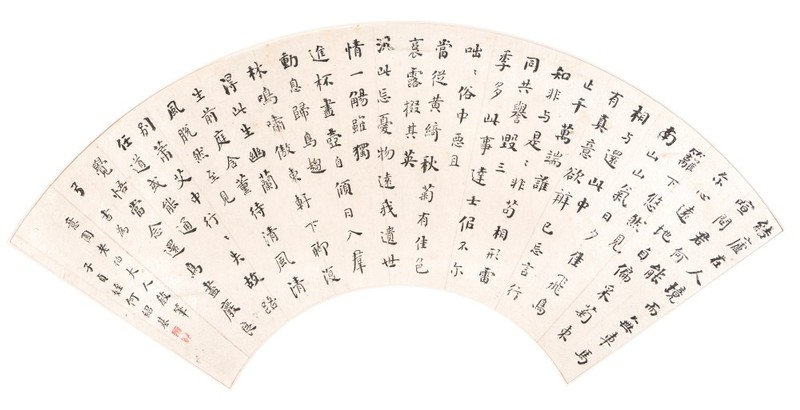 結廬在人境而無車馬
喧問君何能
尔心遠地自偏采菊東
籬下悠然見
南山山氣日夕佳飛鳥
相与還此中
有真意欲辨已忘言行
止千萬端誰
知非与是〻非苟相形雷
同共譽毀三
季多此事達士佀不尔
咄〻俗中惡且
當從黃綺秋菊有佳色
裛露掇其英
汎此忘憂物遠我遺世
情一觴雖獨
進杯盡壺自傾日入羣
動息歸鳥趨
林鳴嘯傲東軒下聊復
得此生幽蘭
生前庭含薰待清風清
風脫然至見
別蕭艾中行〻失故路
任道或能通
覺悟當念還鳥盡廢良
弓
書為
意園老伯大人
子貞姪何紹基